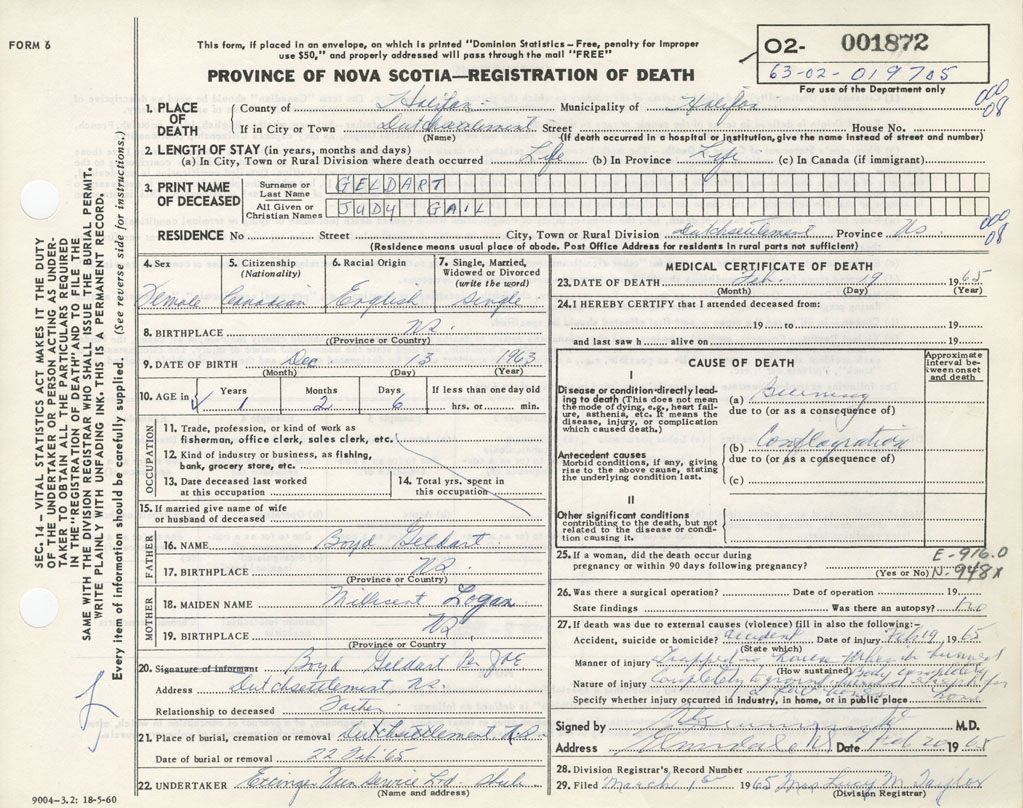 FORM 6
This form, if placed in an envelope, on which is printed "Dominion Statistics – Free, penalty for improper
use $50," and properly addressed will pass through the mail "FREE"
PROVINCE OF NOVA SCOTIA—REGISTRATION OF DEATH
O2- 001872
63-02-019705
For use of the Department only
000
08
1. PLACE OF DEATH { County of Halifax Municipality of Halifax
If in City or Town Dutchsettlement Street House No.
(Name) (If death occurred in a hospital or institution, give the name instead of street and number)
2. LENGTH OF STAY (in years, months and days)
(a) In City, Town or Rural Division where death occurred Life (b) In Province Life (c) In Canada (if immigrant)
3. PRINT NAME OF DECEASED
Surname or Last Name GELDART
All Given or Christian Names JUDY GAIL
RESIDENCE No Street City, Town or Rural Division Dutchsettlement Province NS
(Residence means usual place of abode. Post Office Address for residents in rural parts not sufficient)
000
08
4. Sex Female
5. Citizenship (Nationality) Canadian
6. Racial Origin English
7. Single, Married, Widowed or Divorced (write the word) Single
8. BIRTHPLACE NS.
((Province or Country)
9. DATE OF BIRTH Dec. 13 1963
(Month) (Day) (Year)
10. AGE in Years 1 Months 2 Days 6 If less than one day old hrs. or min.
OCCUPATION
11. Trade, profession, or kind of work as
fisherman, office clerk, sales clerk, etc.
12. Kind of industry or business, as fishing,
bank, grocery store, etc.
13. Date deceased last worked
at this occupation
14. Total yrs. spent in
this occupation
15. If married give name of wife
or husband of deceased
FATHER
16. NAME Boyd Geldart
17. BIRTHPLACE NS.
(Province or Country)
MOTHER
18. MAIDEN NAME Milicent Logan
19. BIRTHPLACE NS
(Province or Country)
20. Signature of informant Boyd Geldart Per
Address Dutchsettlement, NS.
Relationship to deceased Father
21. Place of burial, cremation or removal Dutchsettlement NS
Date of burial or removal 22 Feb '65
22. UNDERTAKER Ettinger Fun Service Ltd.
(Name and address)
MEDICAL CERTIFICATE OF DEATH
23. DATE OF DEATH Feb. 19 1965
(Month) (Day) (Year)
24. I HEREBY CERTIFY that I attended deceased from:
19 to 19
and last saw h alive on 19
CAUSE OF DEATH
Approximate interval between onset and death
I
Disease or condition directly leading
to death (This does not mean
the mode of dying, e.g., heart failure,
asthenia, etc. It means the
disease, injury, or complication
which caused death.)
(a) Burning
due to (or as a consequence of)
Antecedent causes
Morbid conditions, if any, giving
rise to the above cause, stating
the underlying condition last.
(b) Conflagration
due to (or as a consequence of)
(c)
II
Other significant conditions
contributing to the death, but not
related to the disease or condition
causing it.
25. If a woman, did the death occur during
pregnancy or within 90 days following pregnancy?
(Yes or No)
E-916.0
N-948x
26. Was there a surgical operation? Date of operation 19
State findings Was there an autopsy? No
27. If death was due to external causes (violence) fill in also the following:-
Accident, suicide or homicide? accident Date of injury Feb 19 1965
(State which)
Manner of injury Trapped in house which burned
(How sustained)
Nature of injury Completely burned Body completely
Specify whether injury occurred in industry, in home, or in public place home
Signed by M.D.
Address NS Date Feb 20 1965
28. Division Registrar's Record Number
29. Filed March 1st 1965 Mrs Lucy M. Taylor
(Division Registrar)
SEC. 14 – VITAL STATISTICS ACT MAKES IT THE DUTY
OF THE UNDERTAKER OR PERSON ACTING AS UNDER-
TAKER TO OBTAIN ALL THE PARTICULARS REQUIRED
IN THE "REGISTRATION OF DEATH" AND TO FILE THE
SAME WITH THE DIVISION REGISTRAR WHO SHALL ISSUE THE BURIAL PERMIT.
WRITE PLAINLY WITH UNFADING INK. THIS IS A PERMANENT RECORD.
Every item of information should be carefully supplied. (See reverse side for instructions.)
9004-3.2: 18-5-60